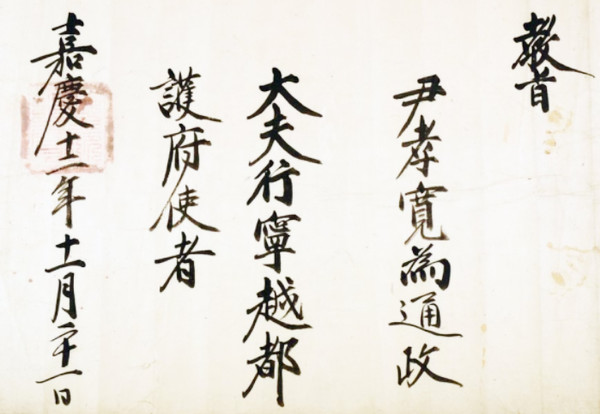 教旨
尹孝寬為通政
大夫行寧越都
護府使者
嘉慶十一年十一月二十一日